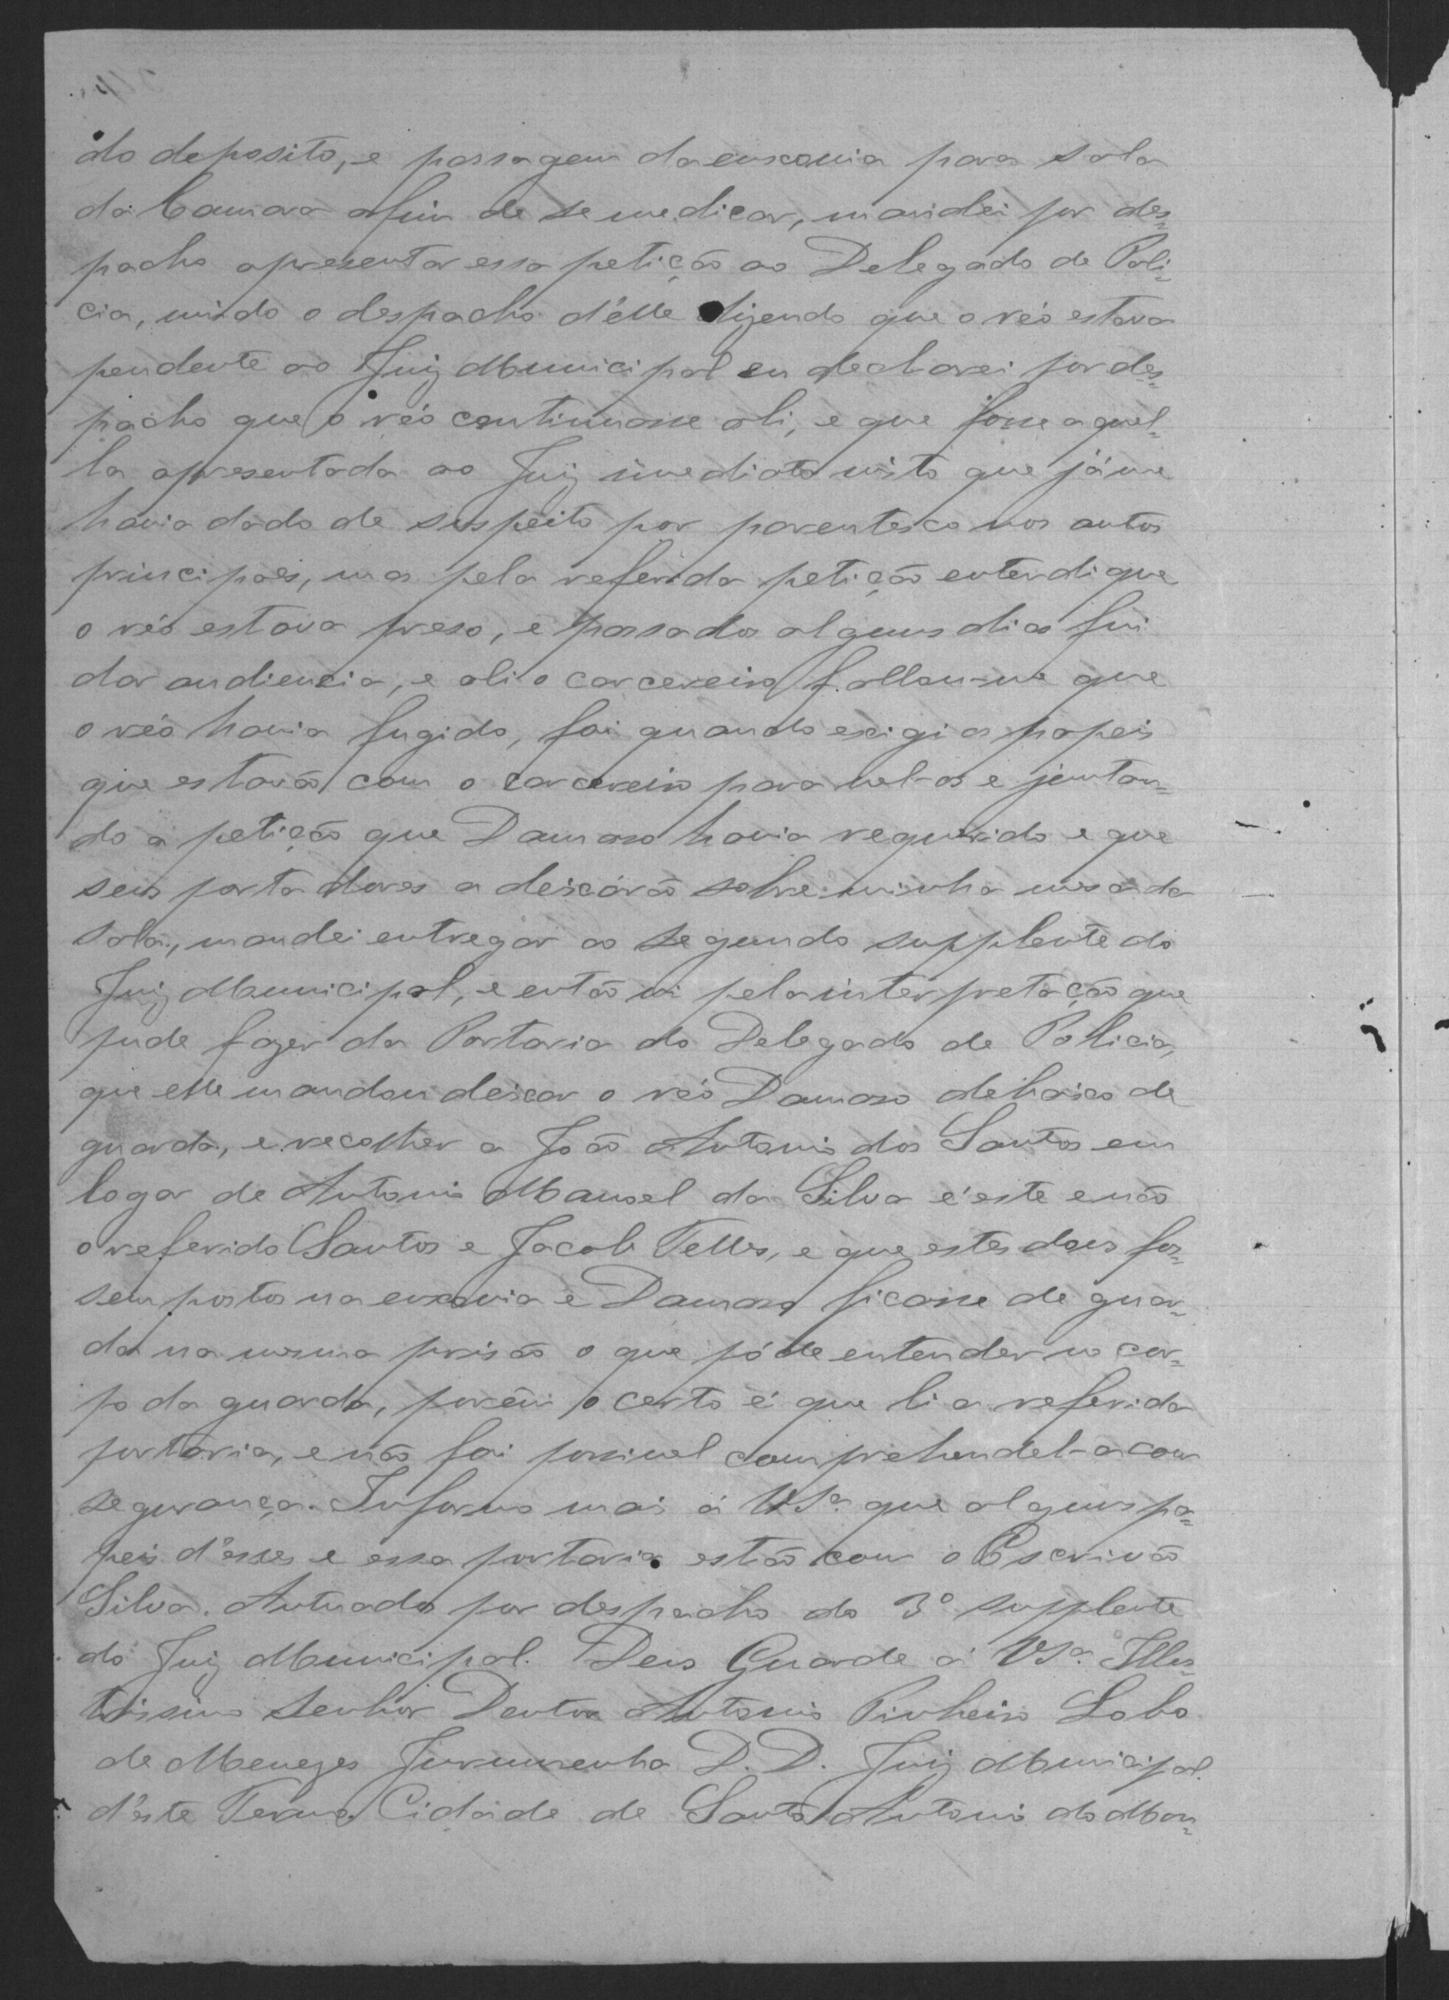 do deposito, e passagem da enxovia para sala
da Camara afim de se medicar, mandei por des=
pacho apresentar essa petição ao Delegado de Poli=
cia, vindo o despacho d'elle dizendo que o réo estava
pendente ao Juiz Municipal eu declarei por des=
pacho que o réo continuasse ali, e que fosse aquel=
la apresentada ao Juiz imediato visto que já me
havia dado de suspeito por parentesco nos autos
principaes, mas pela referida petição entendi que
o réo estava preso, e passados alguns dias fui
dar audiencia, e ali o carcereiro fallou-me que
o réo havia fugido, foi quando exigi os papeis
que estavão com o carcereiro para vel-os e juntan=
do a petição que Damaso havia requerido e que
seus portadores a deixárão sobre minha mesa da
sala, mandei entregar ao segundo supplente do
Juiz Municipal, e então vi pela interpretação que
pude fazer da Portaria do Delegado de Policia,
que elle mandou deixar o réo Damaso debaixo de
guarda, e recolher a João Antonio dos Santos em
logar de Antonio Manoel da Silva é este e não
o referido Santos e Jacob Telles, e que estes dois fos=
sem postos na enxovia e Damaso ficasse de guar=
da na mesma prisão o que póde entender no cor=
po da guarda, porém o certo é que li a referida
portaria, e não foi possivel comprehendel-a com
segurança. Informo mais á VSª. que alguns pa=
peis d'esses e essa portaria estão com o Escrivão
Silva. Autuados por despacho do 3º supplente
do Juiz Municipal. Deus Guarde á VSª. Illus=
trissimo Senhor Doutor Antonio Pinheiro Lobo
de Menezes Jurumenha D.D. Juiz Municipal
d'este Termo Cidade de Santo Antonio do Mon=